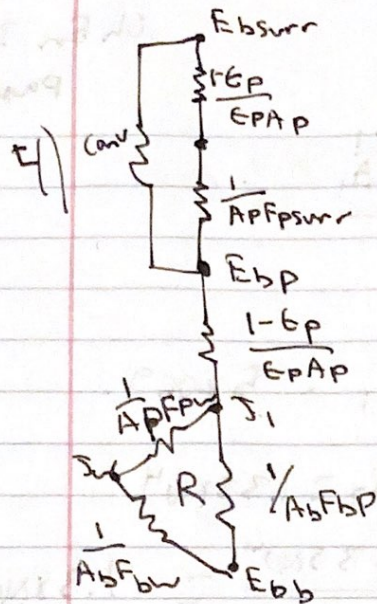 Ebsurr
1-Єp
ЄpAp
4)
Conv
1
ApFpsurr
Ebp
1-Єp
ЄpAp
1
ApFpw
J1
Jw
R
1/AbFbp
1
AbFbw
Ebb